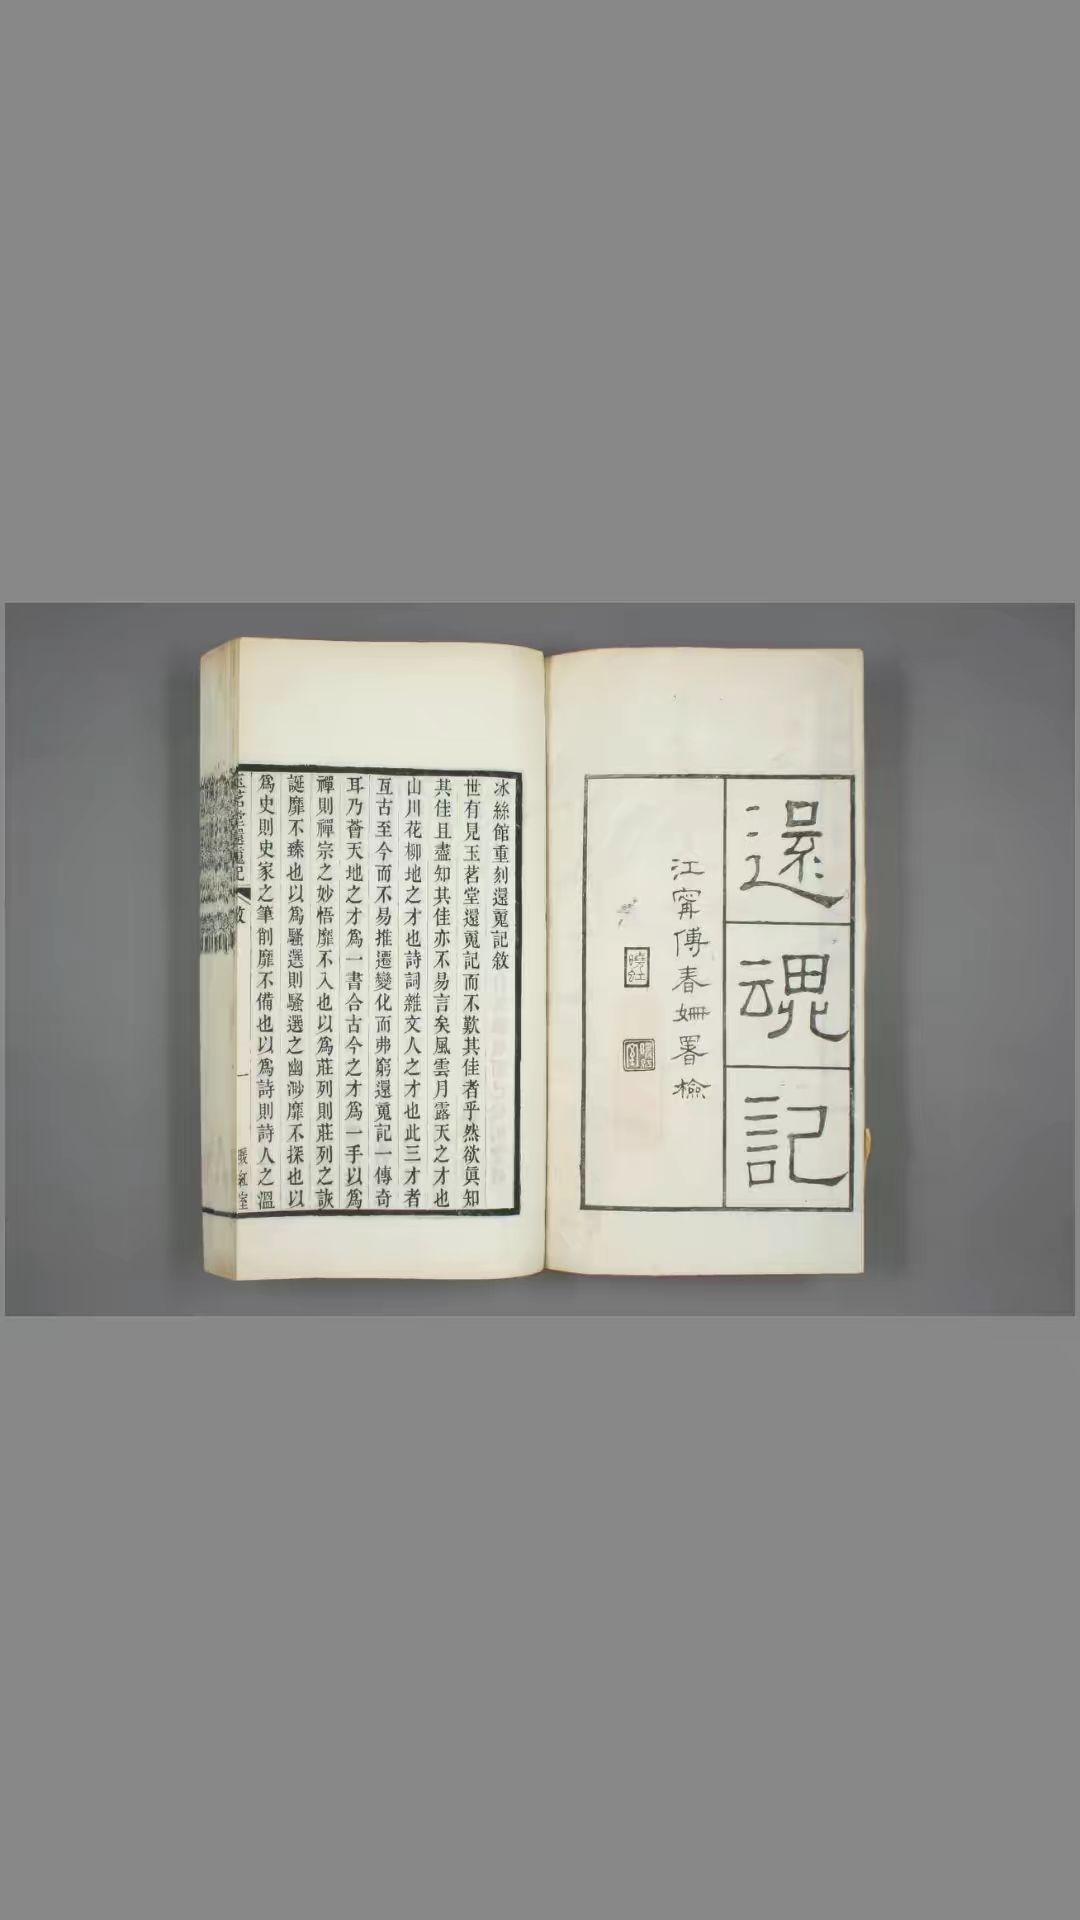 還魂記
江甯傅春姍署檢
曉紅
冰絲館重刻還䰟記敘
世有見玉茗堂還䰟記而不歎其佳者乎然欲眞知
其佳且盡知其佳亦不易言矣風雲月露天之才也
山川花柳地之才也詩詞雜文人之才也此三才者
亙古至今而不易推遷變化而弗窮還䰟記一傳奇
耳乃薈天地之才爲一書合古今之才爲一手以爲
禪則禪宗之妙悟靡不入也以爲莊列則莊列之詼
誕靡不臻也以爲騷選則騷選之幽渺靡不探也以
爲史則史家之筆削靡不備也以爲詩則詩人之溫
玉茗堂還䰟記 敘 一 暖紅室